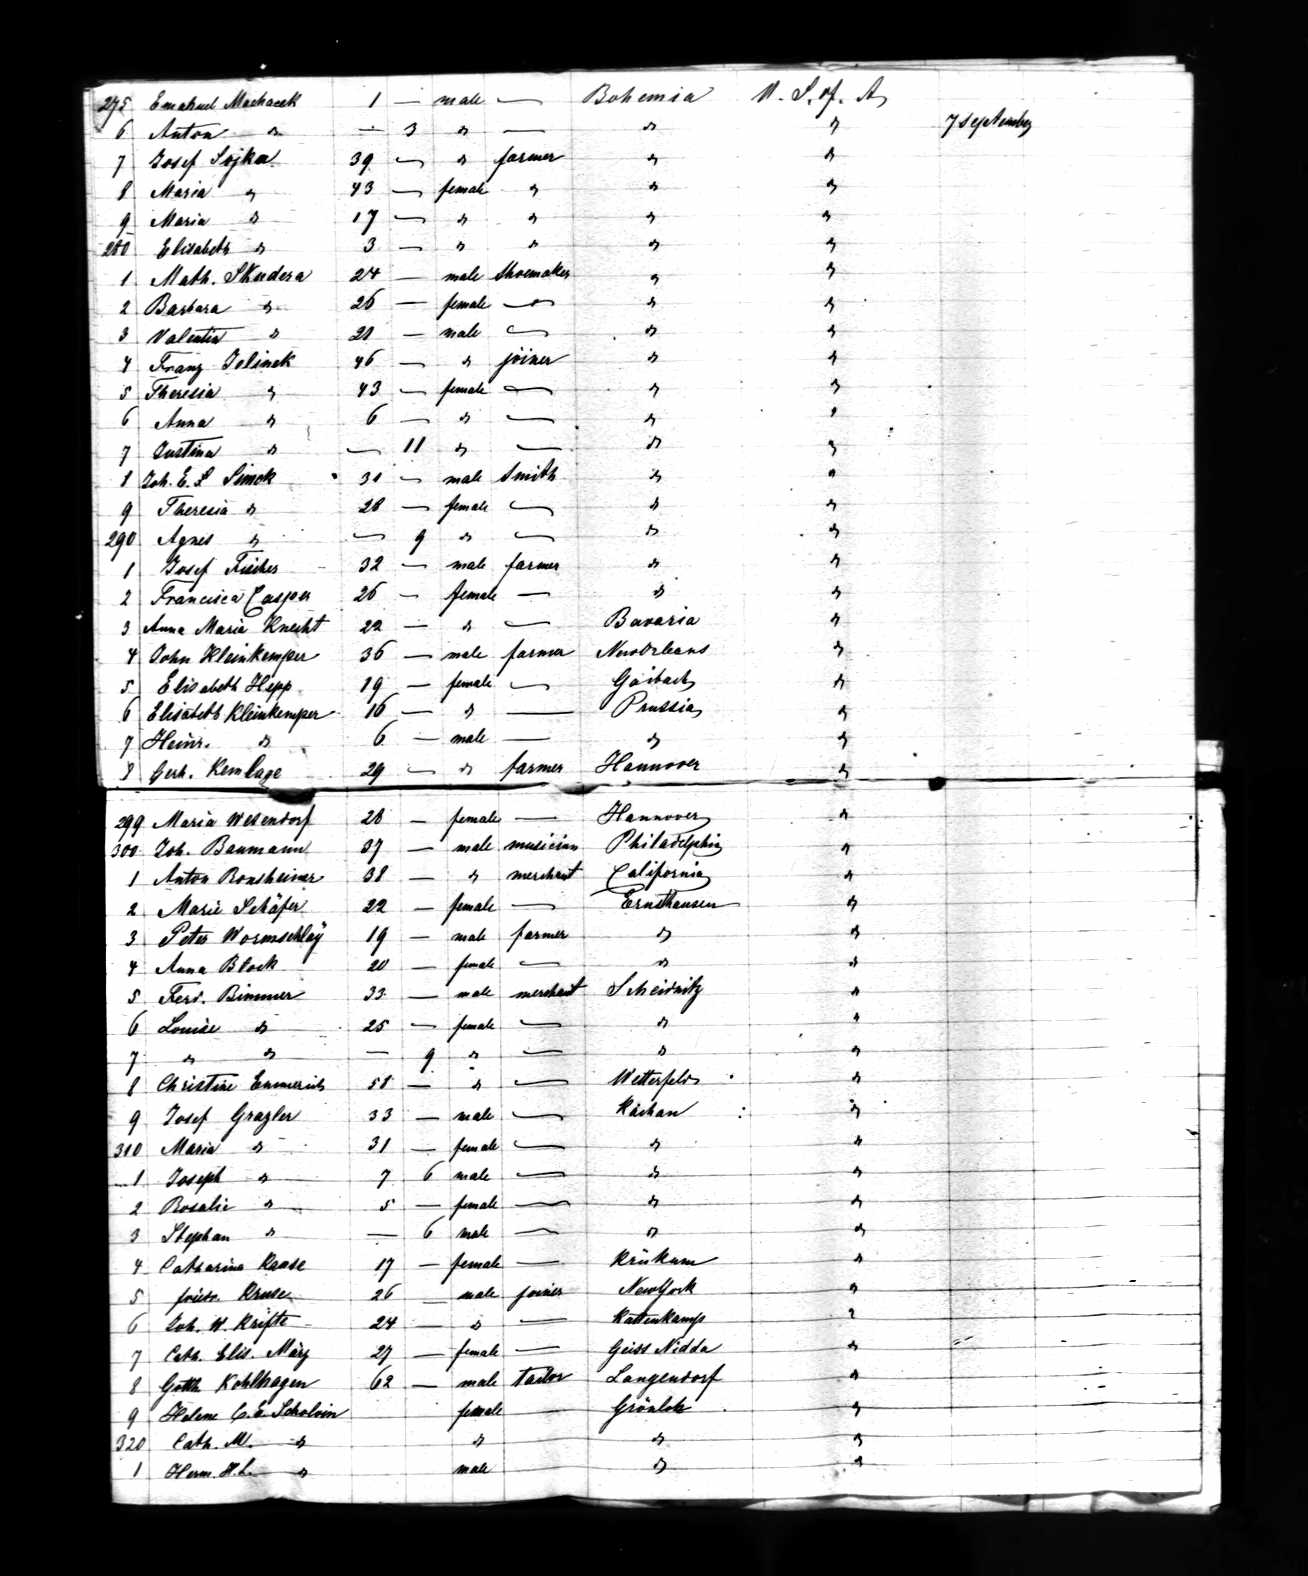 275 Emanuel Machacek 1 — male — Bohemia U. S. of. A
6 Anton " — 3 " — " " 7 September
7 Josef Sojka 39 — " farmer " "
8 Maria " 43 — female " " "
9 Maria " 17 — " " " "
280 Elisabeth " 3 — " " " "
1 Math. Skudera 24 — male Shoemaker " "
2 Barbara " 26 — female — " "
3 Valentin " 21 — male — " "
4 Franz Jelinek 46 — " joiner " "
5 Theresia " 43 — female — " "
6 Anna " 6 — " — " "
7 Justina " — 11 " — " "
8 Joh. E. S Simek 31 — male Smith " "
9 Theresia " 28 — female — " "
290 Agnes " — 9 " — " "
1 Josef Fischer 32 — male farmer " "
2 Francisca Casper 26 — female — " "
3 Anna Maria Knecht 22 — " — Bavaria "
4 John Kleinkemper 36 — male farmer NewOrleans "
5 Elisabeth Hepp 19 — female — "
6 Elisabeth Kleinkemper 16 — " — Prussia "
7 Heinr. " 6 — male — " "
8 Gerh. Kemlage 29 — " farmer Hannover "
299 Maria Wesendorf 28 — female — Hannover "
300 Joh. Baumann 37 — male musician Philadelphia "
1 Anton Ronsheimer 38 — " merchant California "
2 Marie Schäfer 22 — female — Ernsthausen "
3 Peter 19 — male farmer " "
4 Anna Block 20 — female — " "
5 Ferd. Bimmer 33 — male merchant "
6 Louise " 25 — female — " "
7 " " — 9 " — " "
8 Christine Emmerich 58 — " — Wetterfeld "
9 Josef Grazler 33 — male — "
310 Maria " 31 — female — " "
1 Joseph " 7 6 male — " "
2 Rosalie " 5 — female — " "
3 Stephan " — 6 male — " "
4 Catharina Raase 17 — female — Krükum "
5 Kruse 26 — male joiner NewYork "
6 Joh. W. Krifte 24 — " — Kattenkamp "
7 Cath. Elis. März 27 — female — Geiss Nidda "
8 Gottl. Kohlhagen 62 — male tailor Langendorf "
9 Helene C. E. Scholvin female — Grönloh "
320 Cath. M. " " — " "
1 Herm. H. L. " male — " "